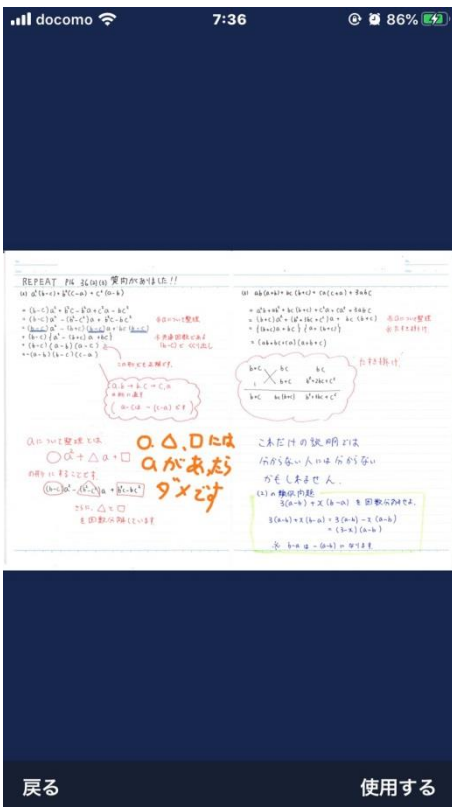 docomo
7:36
86%
REPEAT P16 36(2)(3) 質問がありました!!
(2) a²(b-c)+b²(c-a)+c²(a-b)
= (b-c)a² + b²c-b²a+c²a-bc²
= (b-c)a² - (b²-c²)a + b²c-bc²
aについて整理
= (b-c)a² - (b+c)(b-c)a + bc(b-c)
= (b-c){a²-(b+c)a+bc}
共通因数である
(b-c)でくくり出し
= (b-c)(a-b)(a-c)
= -(a-b)(b-c)(c-a)
この形でも正解です。
a,b→b,c→c,a
の形に直す
( a-cは -(c-a)です )
aについて整理とは
○a²+△a+□
の形にすることです
(b-c)a²-(b²-c²)a+b²c-bc²
さらに、△と□
を因数分解しています
○、△、□には
aがあったら
ダメです
(3) ab(a+b)+bc(b+c)+ca(c+a)+3abc
= a²b+ab²+bc(b+c)+c²a+ca²+3abc
= (b+c)a²+(b²+3bc+c²)a+bc(b+c)
aについて整理
= {(b+c)a+bc}{a+(b+c)}
たすき掛け
= (ab+bc+ca)(a+b+c)
たすき掛け
b+c bc bc
1 b+c b²+2bc+c²
b+c bc(b+c) b²+3bc+c²
これだけの説明では
分からない人には分からない
かもしれません。
(2)の類似問題
3(a-b)+x(b-a)を因数分解せよ。
3(a-b)+x(b-a)=3(a-b)-x(a-b)
=(3-x)(a-b)
※ b-aは-(a-b)になります
戻る
使用する